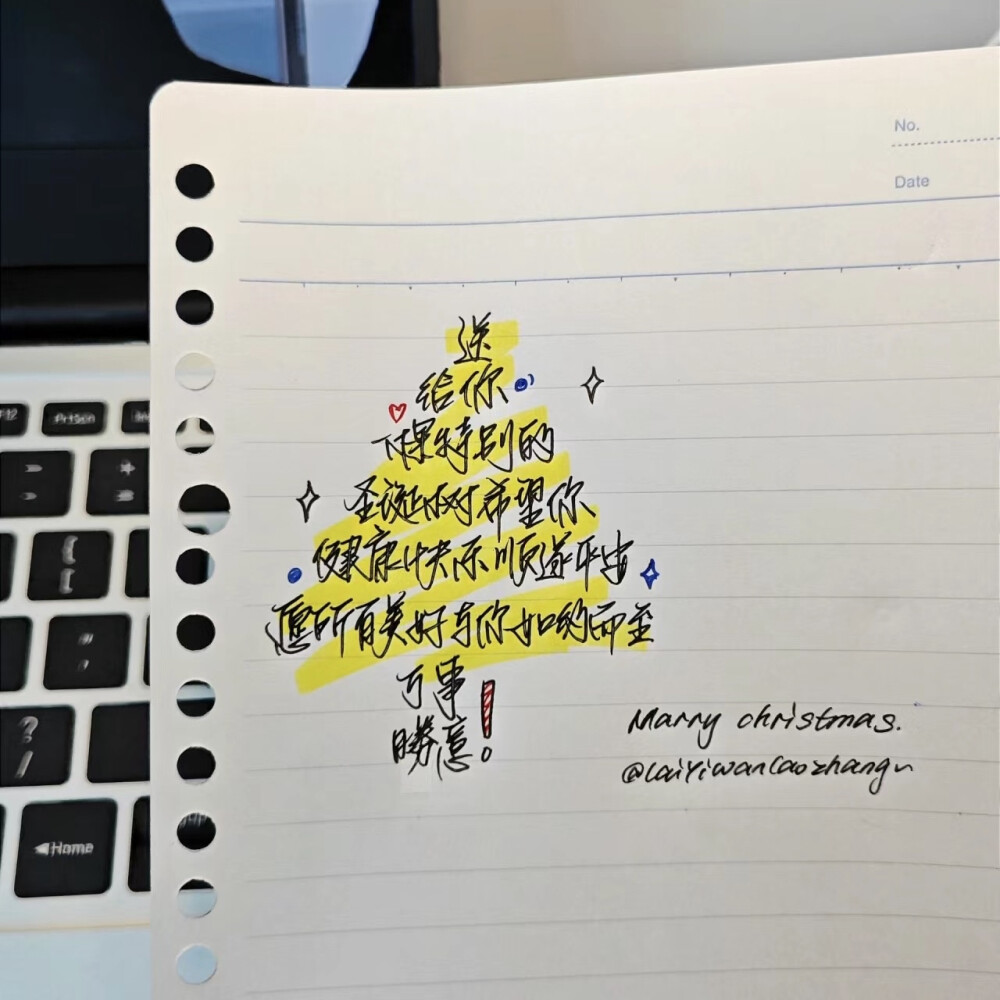 No.
Date
送
给你
一棵特别的
圣诞树希望你
健康快乐顺遂平安
愿所有美好与你如约而至
万事
胜意!
Marry christmas.
@laiYiwanlaozhang
F12
PrtScn
?
/
Home